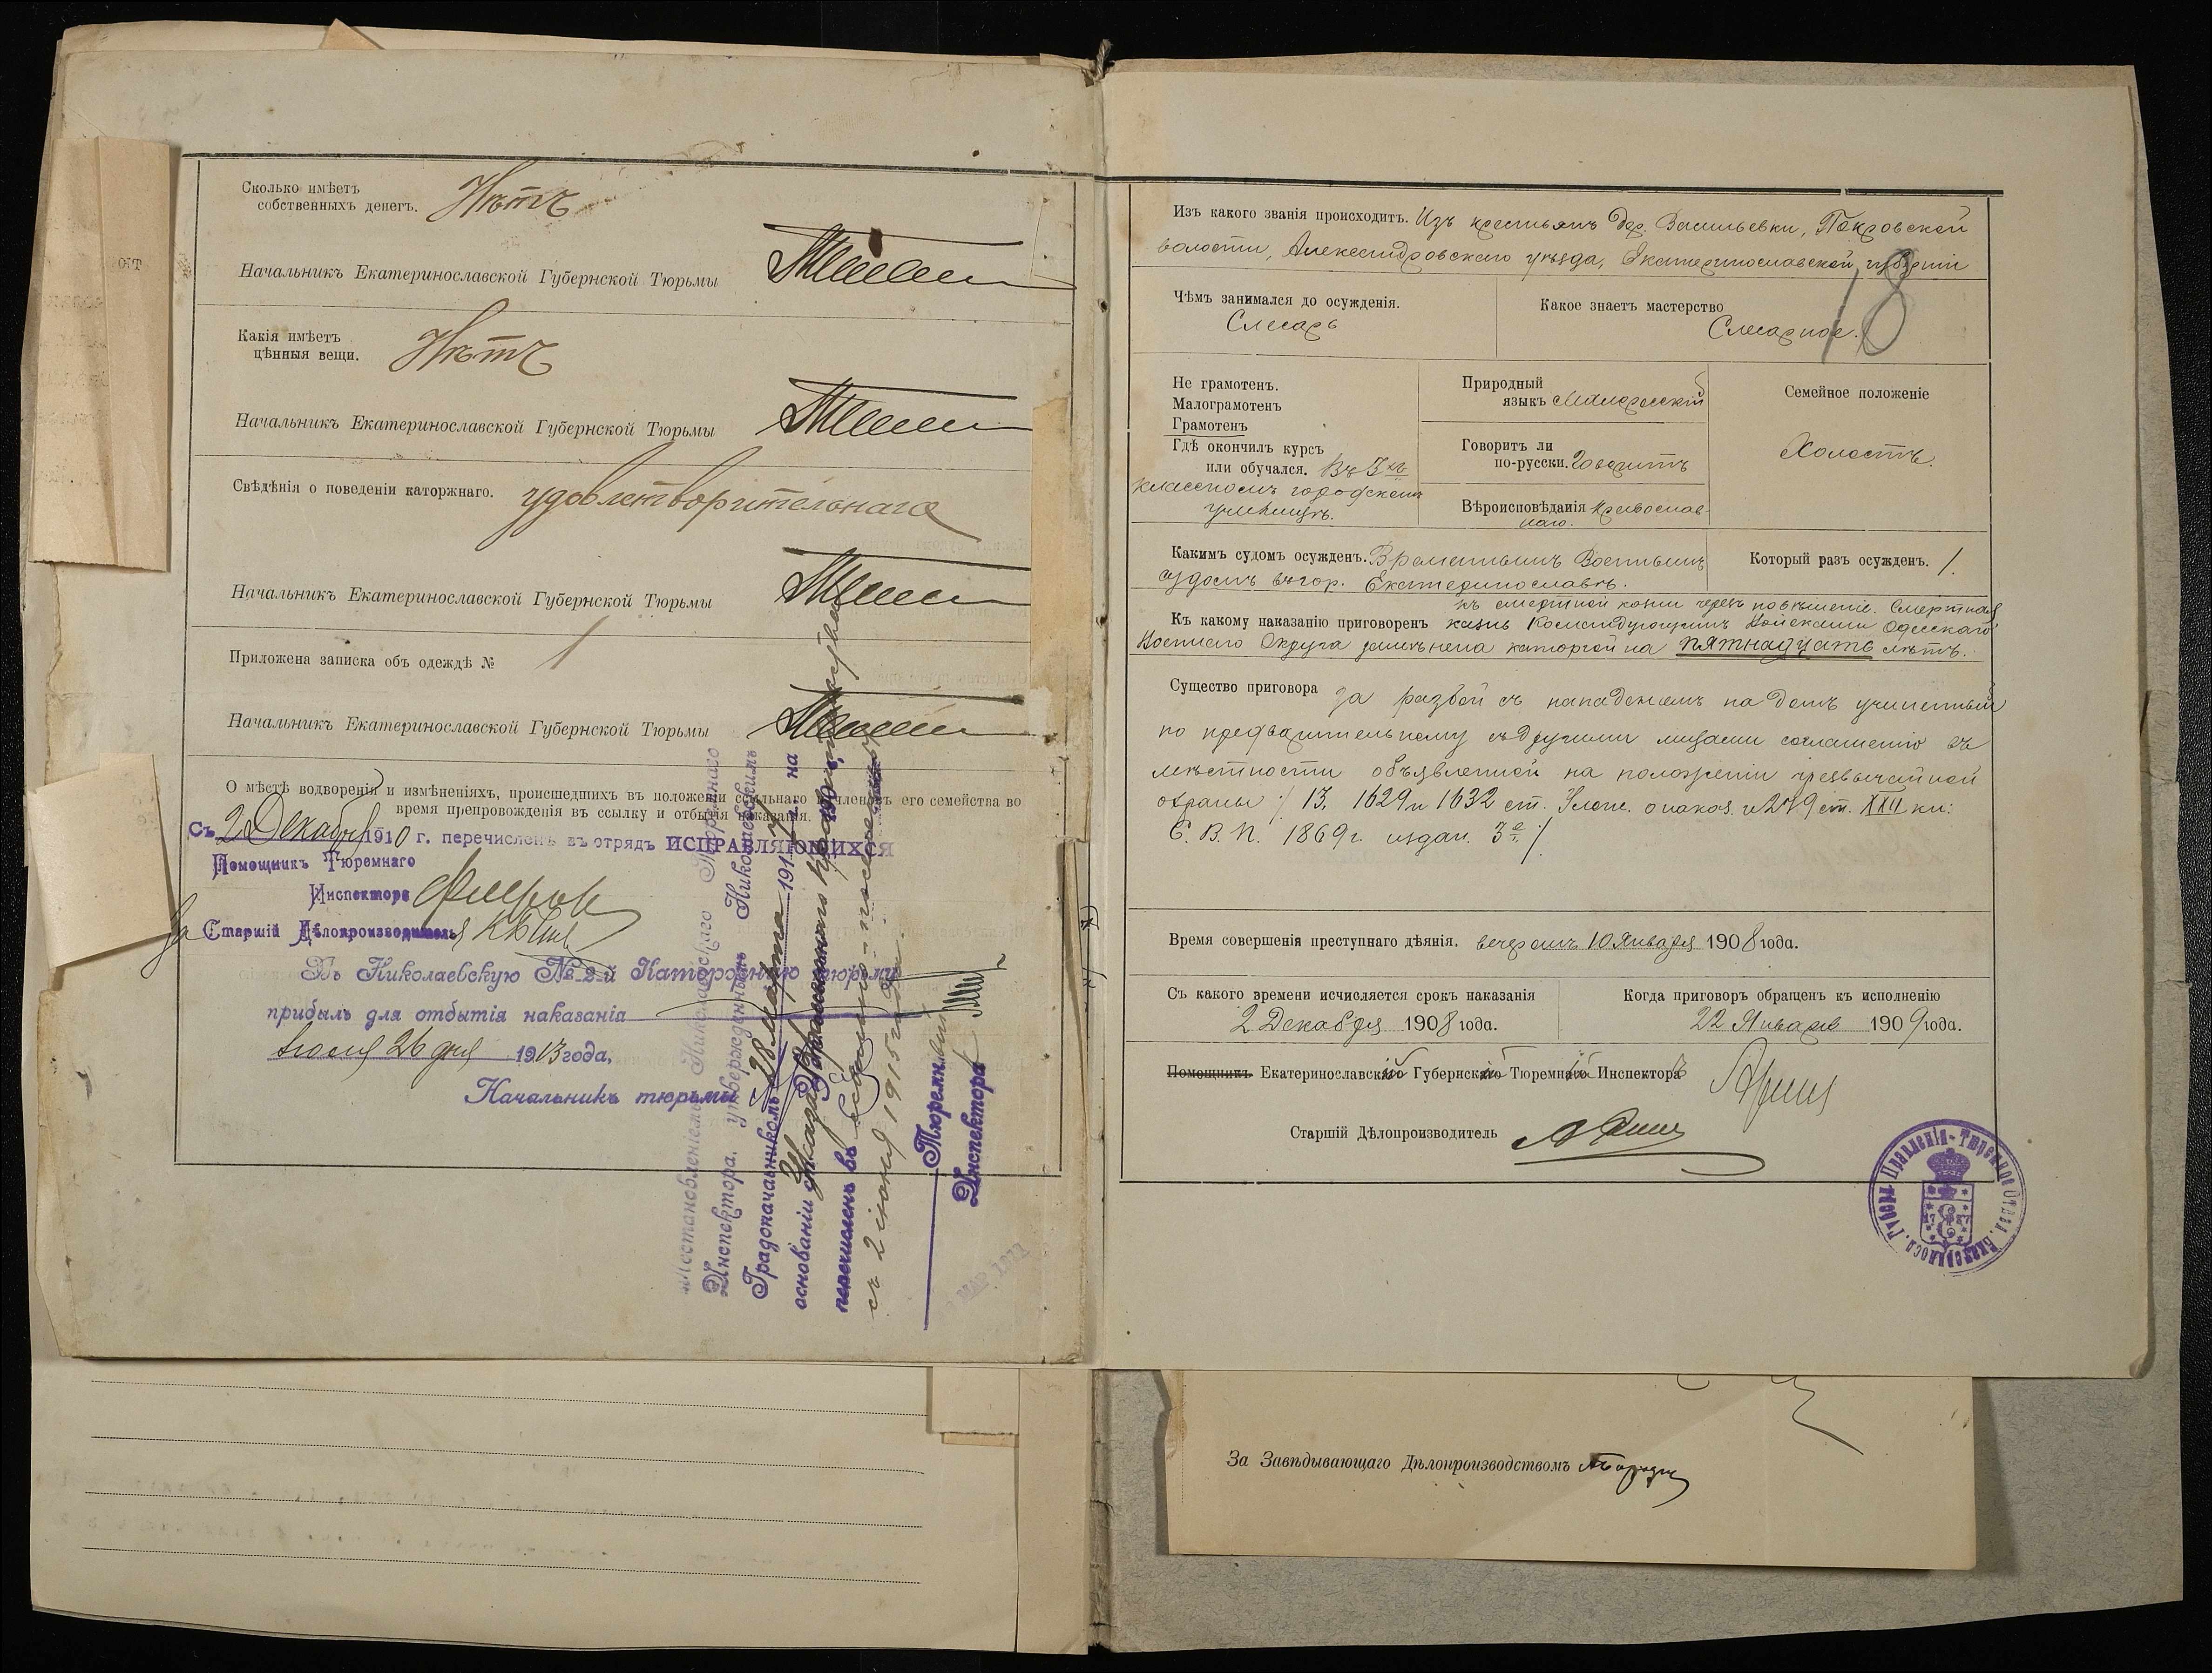 Сколько имѣетъ
собственныхъ денегъ. Нѣтъ
Начальникъ Екатеринославской Губернской Тюрьмы
Какія имѣетъ
цѣнныя вещи. Нѣтъ
Начальникъ Екатеринославской Губернской Тюрьмы
Свѣдѣнія о поведеніи каторжнаго. удовлетворительнаго
Начальникъ Екатеринославской Губернской Тюрьмы
Приложена записка объ одеждѣ № 1
Начальникъ Екатеринославской Губернской Тюрьмы
О мѣстѣ водворенія и измѣненіяхъ, происшедшихъ въ положеніи ссыльнаго и членовъ его семейства во
время препровожденія въ ссылку и отбытія наказанія.
Съ 2 Декабря 1910 г. перечисленъ въ отрядъ ИСПРАВЛЯЮЩИХСЯ
Помощникъ Тюремнаго
Инспектора
За Старшій Дѣлопроизводитель
Въ Николаевскую № 2-й Каторжную тюрьму
прибылъ для отбытія наказанія
Іюля 26 дня 1913 года,
Начальникъ тюрьмы
Постановленіемъ Николаевскаго Тюремнаго
Инспектора, утвержденнымъ Николаевскимъ
Градоначальникомъ 28 Марта 191 г. на
основаніи
перечисленъ въ ссыльно-поселенцы
съ 2 іюня 1915 года.
Тюремный
Инспекторъ
МАР. 1911
Изъ какого званія происходитъ. Изъ крестьянъ дер. Васильевки, Покровской
волости, Александровскаго уѣзда, Екатеринославской губерніи
18
Чѣмъ занимался до осужденія.
Слесарь
Какое знаетъ мастерство
Слесарное.
Не грамотенъ.
Малограмотенъ
Грамотенъ
Гдѣ окончилъ курсъ
или обучался. Въ 3хъ
классномъ городскомъ
училищѣ.
Природный
языкъ Малоросскій
Говоритъ ли
по-русски. Говоритъ
Вѣроисповѣданія Православ-
наго.
Семейное положеніе
Холостъ.
Какимъ судомъ осужденъ. Временнымъ Военнымъ
судомъ въ гор. Екатеринославѣ.
Который разъ осужденъ. 1.
къ смертной казни черезъ повѣшеніе. Смертная
Къ какому наказанію приговоренъ казнь Командующимъ Войсками Одесскаго
Военнаго Округа замѣнена каторгой на пятнадцать лѣтъ.
Существо приговора за разбой съ нападеніемъ на домъ учиненный
по предварительному съ другими лицами соглашенію въ
мѣстности объявленной на положеніи чрезвычайной
охраны /: 13, 1629 и 1632 ст. Улож. о наказ. и 279 ст. XXII кн:
С. В. П. 1869 г. издан. 3е :/.
Время совершенія преступнаго дѣянія. вечеромъ 10 Января 1908 года.
Съ какого времени исчисляется срокъ наказанія
2 Декабря 1908 года.
Когда приговоръ обращенъ къ исполненію
22 Января 1909 года.
Помощникъ Екатеринославскій Губернскій Тюремный Инспекторъ
Старшій Дѣлопроизводитель
Екатеринослав. Губерн. Правленія - Тюремное Отдѣл.
За Завѣдывающаго Дѣлопроизводствомъ